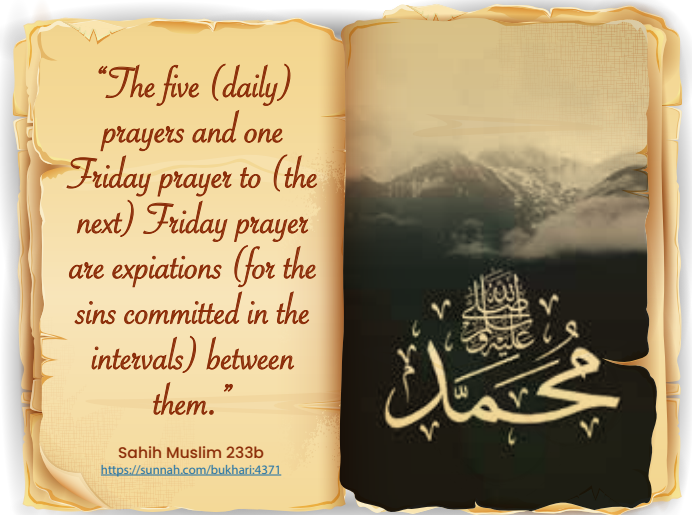 “The five (daily)
prayers and one
Friday prayer to (the
next) Friday prayer
are expiations (for the
sins committed in the
intervals) between
them.”
Sahih Muslim 233b
https://sunnah.com/bukhari:4371
صلى الله عليه وسلم
محمد